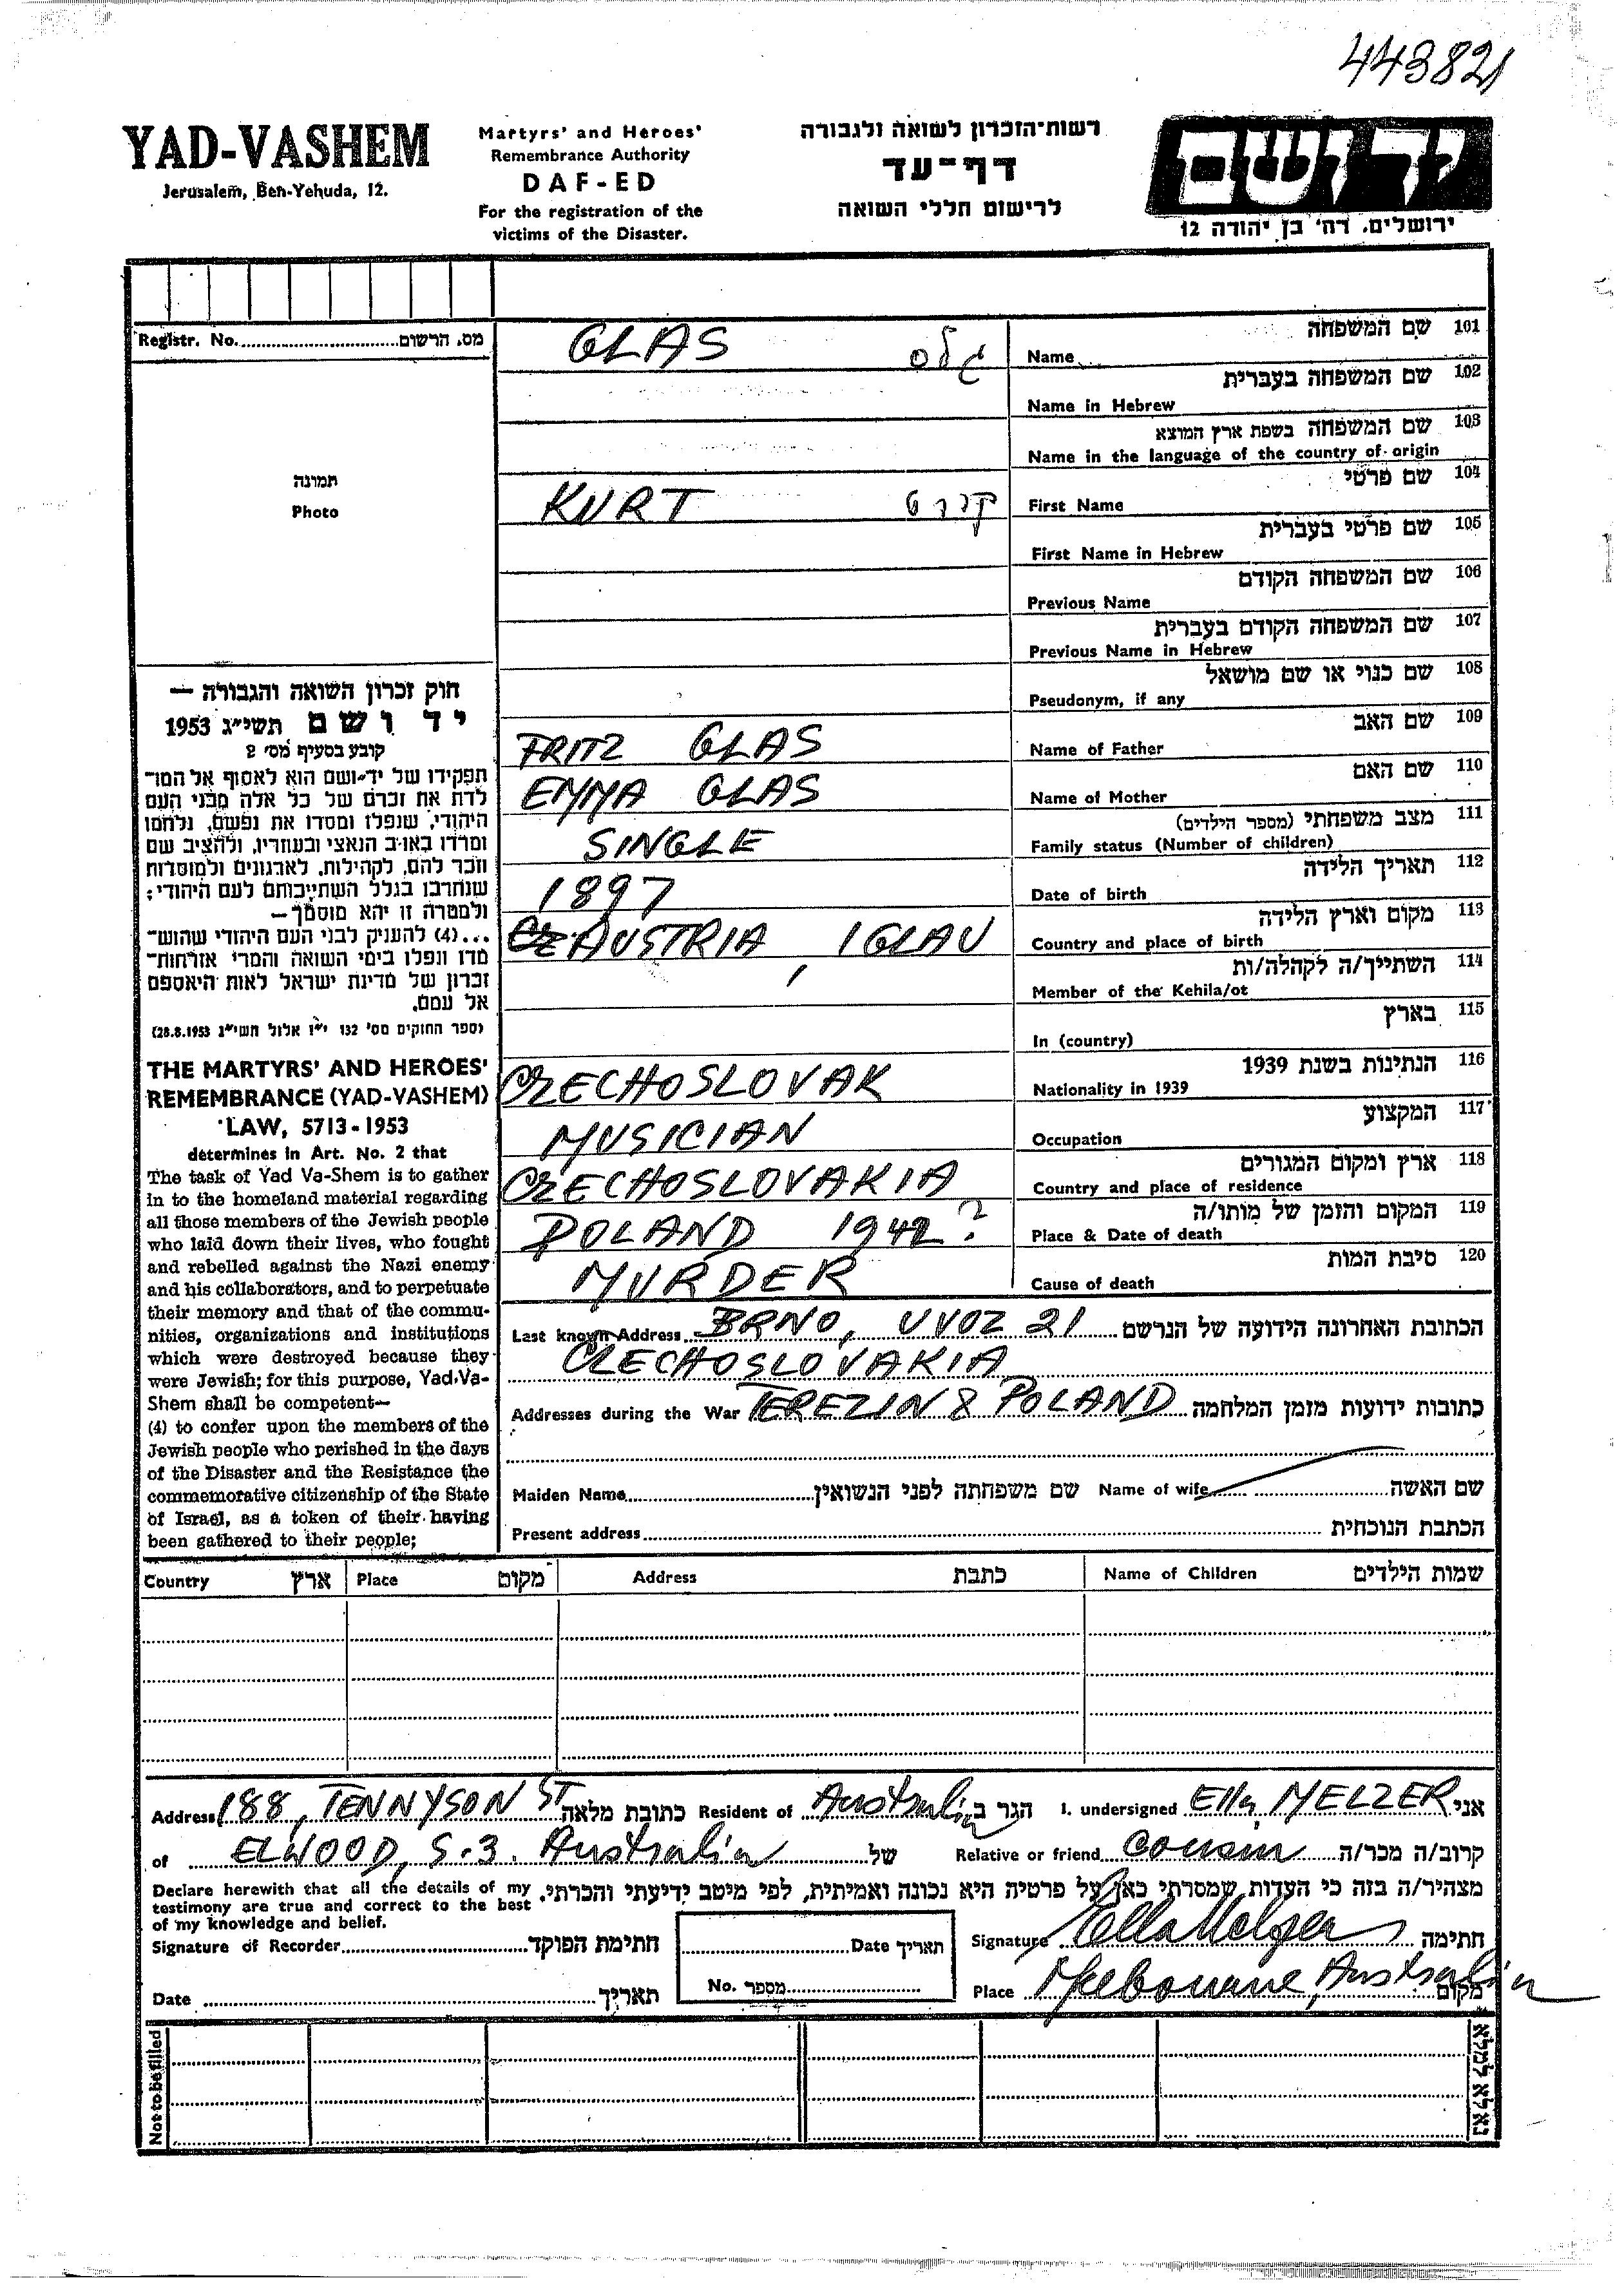 443821
YAD-VASHEM
Jerusalem, Ben-Yehuda, 12.
Martyrs' and Heroes'
Remembrance Authority
DAF-ED
For the registration of the
victims of the Disaster.
רשות-הזכרון לשואה ולגבורה
דף-עד
לרישום חללי השואה
יד ושם
ירושלים, רח' בן יהודה 12
Registr. No. מס. הרשום
תמונה
Photo
חוק זכרון השואה והגבורה —
יד ושם תשי"ג 1953
קובע בסעיף מס' 2
תפקידו של יד-ושם הוא לאסוף אל המו־
לדת את זכרם של כל אלה מבני העם
היהודי, שנפלו ומסרו את נפשם, נלחמו
ומרדו באויב הנאצי ובעוזריו, ולהציב שם
וזכר להם, לקהילות, לארגונים ולמוסדות
שנחרבו בגלל השתייכותם לעם היהודי;
ולמטרה זו יהא מוסמך —
...(4) להעניק לבני העם היהודי שהוש־
מדו ונפלו בימי השואה והמרי אזרחות־
זכרון של מדינת ישראל לאות היאספם
אל עמם.
(ספר החוקים מס' 132 י"ז אלול תשי"ג 28.8.1953)
THE MARTYRS' AND HEROES'
REMEMBRANCE (YAD-VASHEM)
LAW, 5713-1953
determines in Art. No. 2 that
The task of Yad Va-Shem is to gather
in to the homeland material regarding
all those members of the Jewish people
who laid down their lives, who fought
and rebelled against the Nazi enemy
and his collaborators, and to perpetuate
their memory and that of the commu-
nities, organizations and institutions
which were destroyed because they
were Jewish; for this purpose, Yad Va-
Shem shall be competent—
(4) to confer upon the members of the
Jewish people who perished in the days
of the Disaster and the Resistance the
commemorative citizenship of the State
of Israel, as a token of their having
been gathered to their people;
GLAS גלס Name שם המשפחה 101
Name in Hebrew שם המשפחה בעברית 102
Name in the language of the country of origin שם המשפחה בשפת ארץ המוצא 103
KURT קורט First Name שם פרטי 104
First Name in Hebrew שם פרטי בעברית 105
Previous Name שם המשפחה הקודם 106
Previous Name in Hebrew שם המשפחה הקודם בעברית 107
Pseudonym, if any שם כנוי או שם מושאל 108
FRITZ GLAS Name of Father שם האב 109
EMMA GLAS Name of Mother שם האם 110
SINGLE Family status (Number of children) מצב משפחתי (מספר הילדים) 111
1897 Date of birth תאריך הלידה 112
AUSTRIA, IGLAU Country and place of birth מקום וארץ הלידה 113
Member of the Kehila/ot השתייך/ה לקהלה/ות 114
In (country) בארץ 115
CZECHOSLOVAK Nationality in 1939 הנתינות בשנת 1939 116
MUSICIAN Occupation המקצוע 117
CZECHOSLOVAKIA Country and place of residence ארץ ומקום המגורים 118
POLAND 1942? Place & Date of death המקום והזמן של מותו/ה 119
MURDER Cause of death סיבת המות 120
Last known Address BRNO, UVOZ 21 הכתובת האחרונה הידועה של הנרשם
CZECHOSLOVAKIA
Addresses during the War TEREZIN & POLAND כתובות ידועות מזמן המלחמה
Maiden Name שם משפחתה לפני הנשואין Name of wife שם האשה
Present address הכתבת הנוכחית
Country ארץ Place מקום Address כתבת Name of Children שמות הילדים
Address 188, TENNYSON ST כתובת מלאה Resident of Australia הגר ב I. undersigned Ella MELZER אני
of ELWOOD, S.3. Australia של Relative or friend cousin קרוב/ה מכר/ה
Declare herewith that all the details of my
testimony are true and correct to the best
of my knowledge and belief.
מצהיר/ה בזה כי העדות שמסרתי כאן על פרטיה היא נכונה ואמיתית, לפי מיטב ידיעתי והכרתי.
Signature of Recorder חתימת הפוקד Date תאריך Signature Ella Melzer חתימה
Date תאריך No. מספר Place Melbourne, Australia מקום
Not to be filled
נא לא למלא